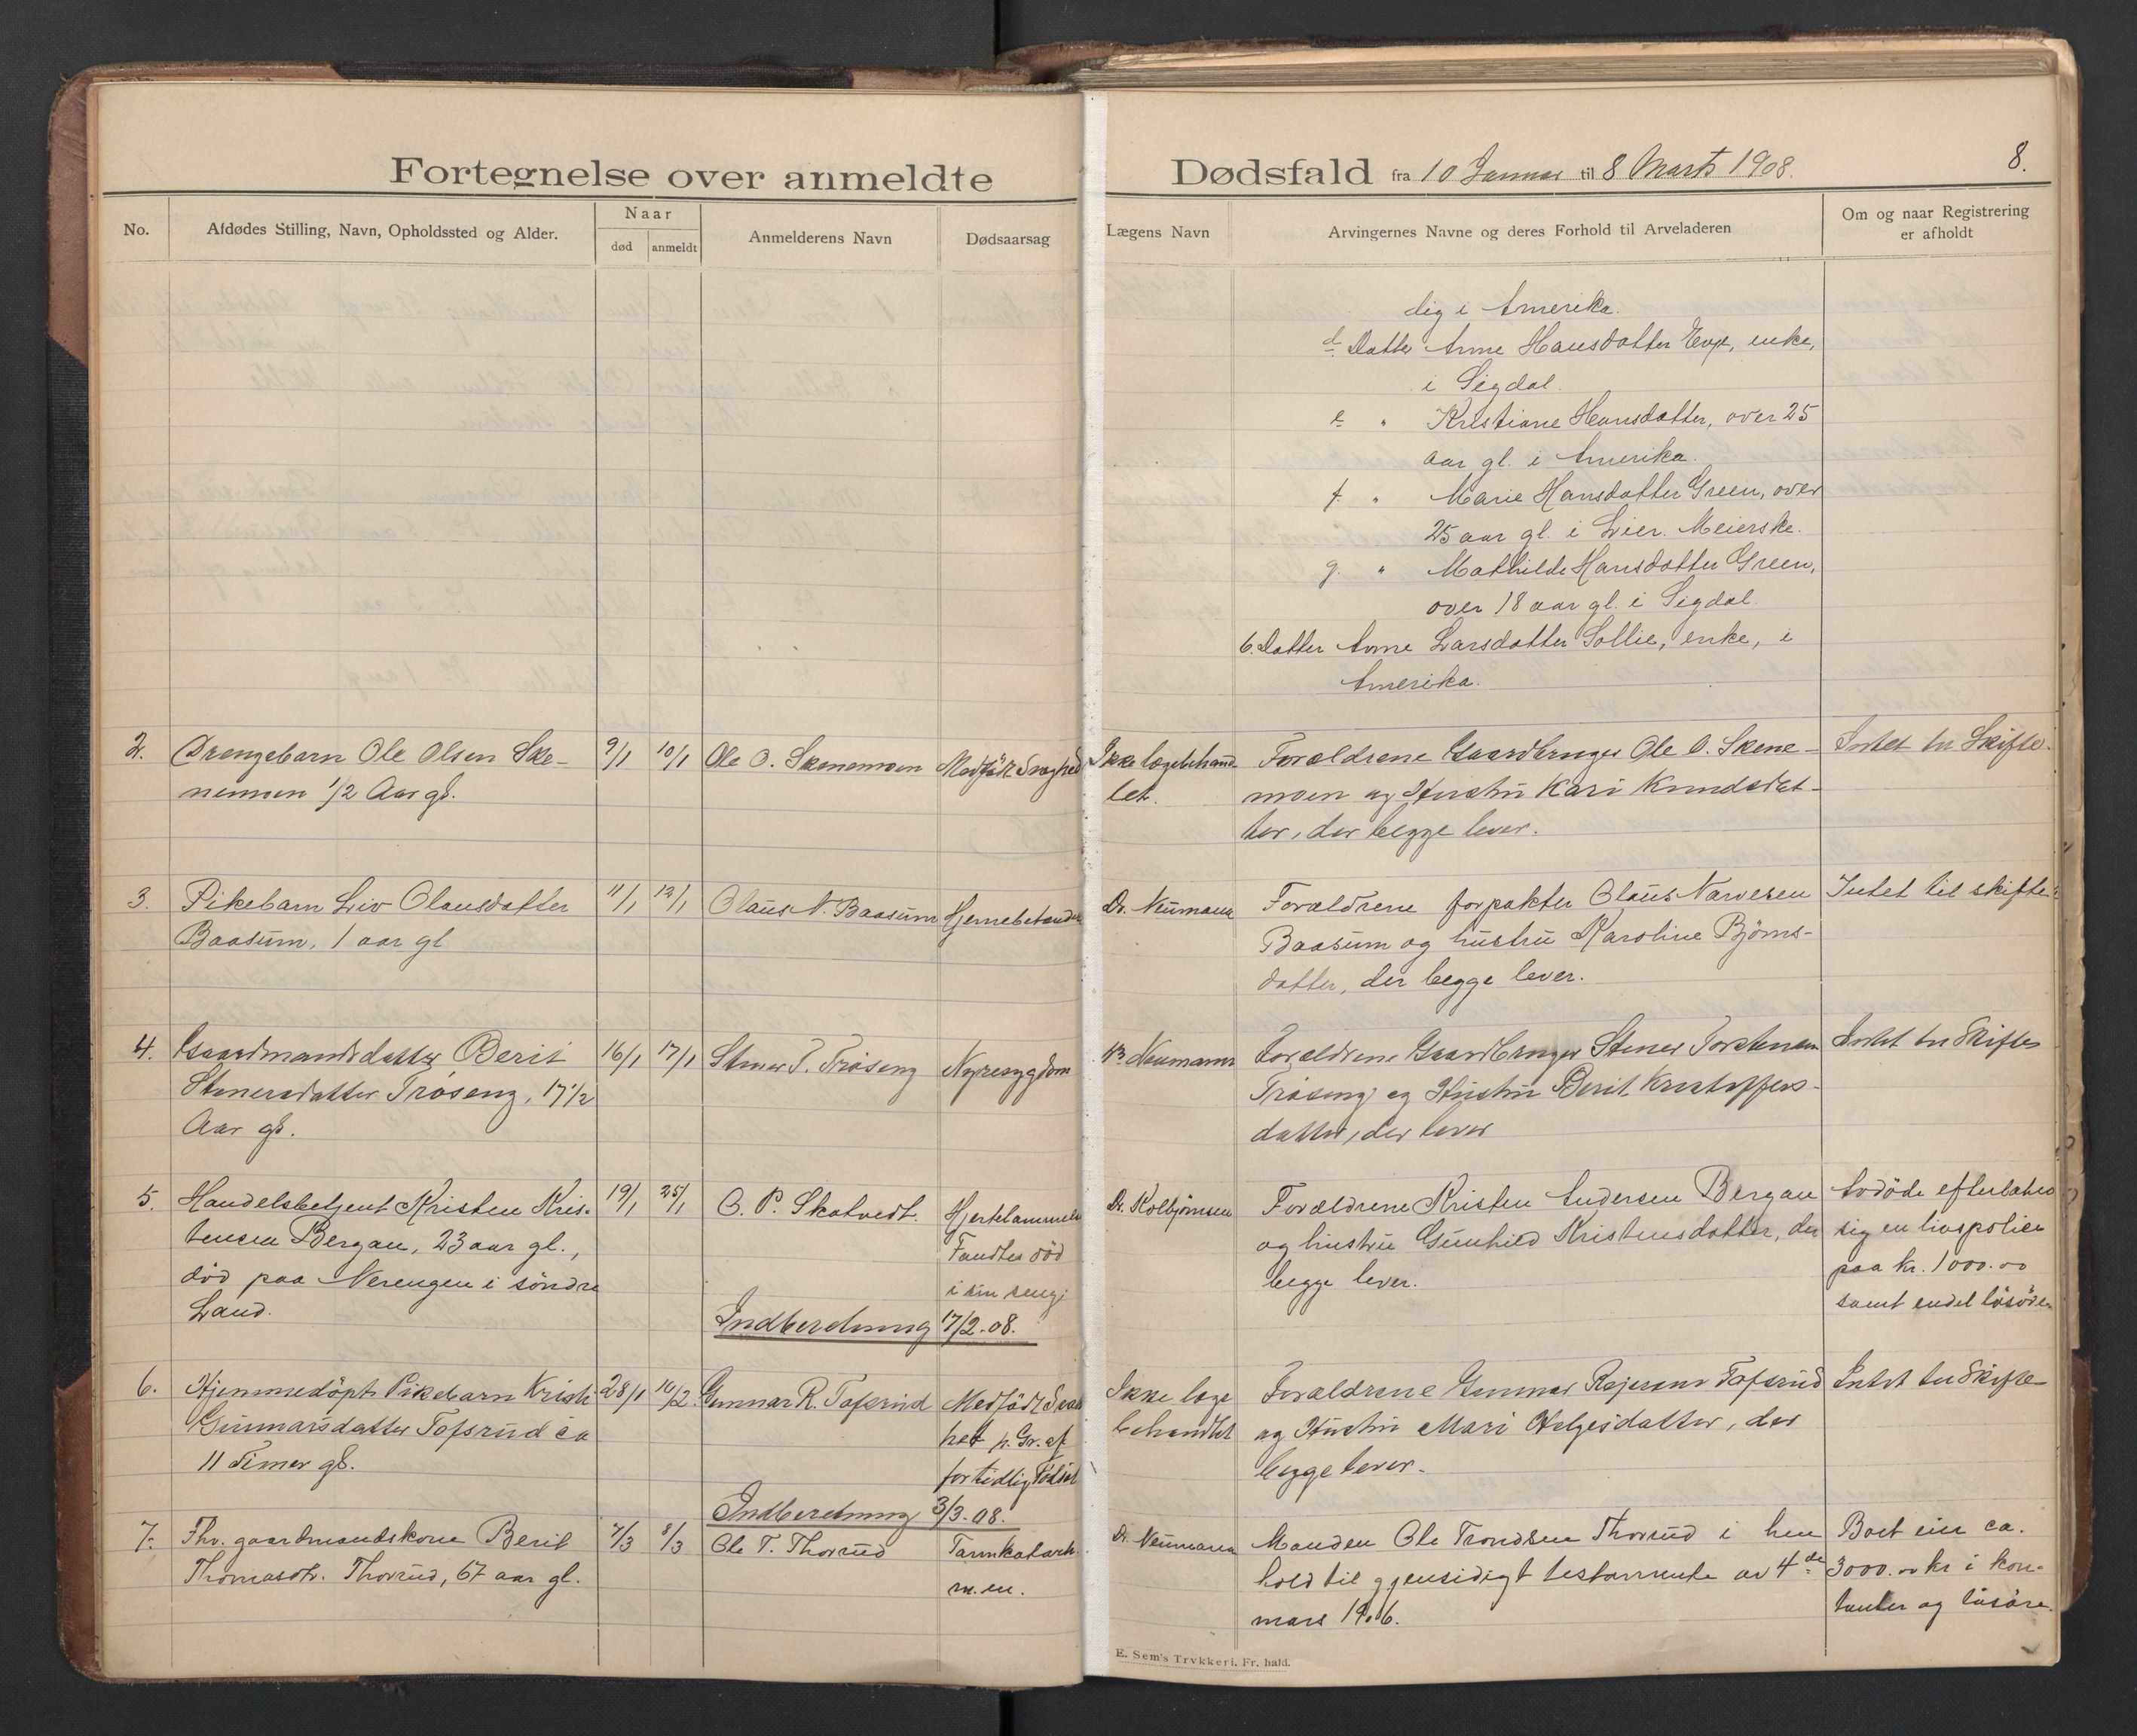 Fortegnelse over anmeldte
No.
Afdødes Stilling, Navn, Opholdssted og Alder.
Naar
død
anmeldt
Anmelderens Navn
Dødsaarsag
2.
Drengebarn Ole Olsen Ske-
nemoen 1/2 Aar gl.
9/1
10/1
Ole O. Skenemoen
Medfødt Svaghed
3.
Pikebarn Liv Olausdatter
Baasum, 1 aar gl
11/1
12/1
Olaus N. Baasum
Hjernebetændelse
4.
Gaardmandsdatter Berit
Stenersdatter Trøseng, 17 1/2
Aar gl.
16/1
17/1
Stener T. Trøseng
Nyresygdom
5.
Handelsbetjent Kristen Kris-
tensen Bergan, 23 aar gl.,
død paa Nerengen i søndre
Land.
19/1
25/1
O. P. Skatvedt.
Hjertelammelse
Fandtes død
i sin seng.
Indberetning 17/2-08.
6.
Hjemmedöpt Pikebarn Kristi
Gunnarsdatter Tofsrud ca
11 Timer gl.
28/1
10/2.
Gunnar R. Tofsrud
Medfödt Svag
het p. Gr. af
for tidlig Fødsel
Indberetning 3/3-08.
7.
Fhv. gaardmandskone Berit
Thomasdtr. Thorrud, 67 aar gl.
7/3
8/3
Ole T. Thorrud
Tarmkatarh
m.m.
Dødsfald fra 10 Januar til 8 Marts 1908.
8.
Lægens Navn
Arvingernes Navne og deres Forhold til Arveladeren
Om og naar Registrering
er afholdt
dig i Amerika.
d. Datter Anne Hansdatter Enge, enke,
i Sigdal.
e. " Kristiane Hansdatter, over 25
aar gl. i Amerika.
f. " Marie Hansdatter Green, over
25 aar gl. i Lier. Meierske.
g. " Mathilde Hansdatter Green,
over 18 aar gl. i Sigdal.
6. Datter Anne Larsdatter Sollie, enke, i
Amerika.
Ikke lægebehand-
let.
Forældrene Gaardbruger Ole O. Skene-
moen og Hustru Kari Knudsdat-
ter, der begge lever.
Intet til Skifte.
Dr. Neumann
Forældrene forpakter Olaus Narvesen
Baasum og hustru Karoline Björns-
datter, der begge lever.
Intet til skifte.
Dr Neumann
Forældrene Gaardbruger Stener Torstensen
Trøseng og Hustru Berit Kristoffers-
datter, der lever
Intet til Skifte
Dr. Kolbjørnsen
Forældrene Kristen Andersen Bergan
og hustru Gunhild Kristensdatter, der
begge lever.
Avdøde efterlater
sig en livspolice
paa kr. 1000.00
samt endel løsøre
Ikke læge
behandlet
Forældrene Gunnar Tofsrud
og Hustru Mari Helgesdatter, der
begge lever.
Intet til Skifte
Dr. Neumann
Manden Ole Trondsen Thorrud i hen
hold til gjensidigt testamente av 4de
mars 1906.
Boet eier ca.
3000.00 kr i kon-
tanter og løsøre.
E. Sem's Trykkeri, Fr. hald.